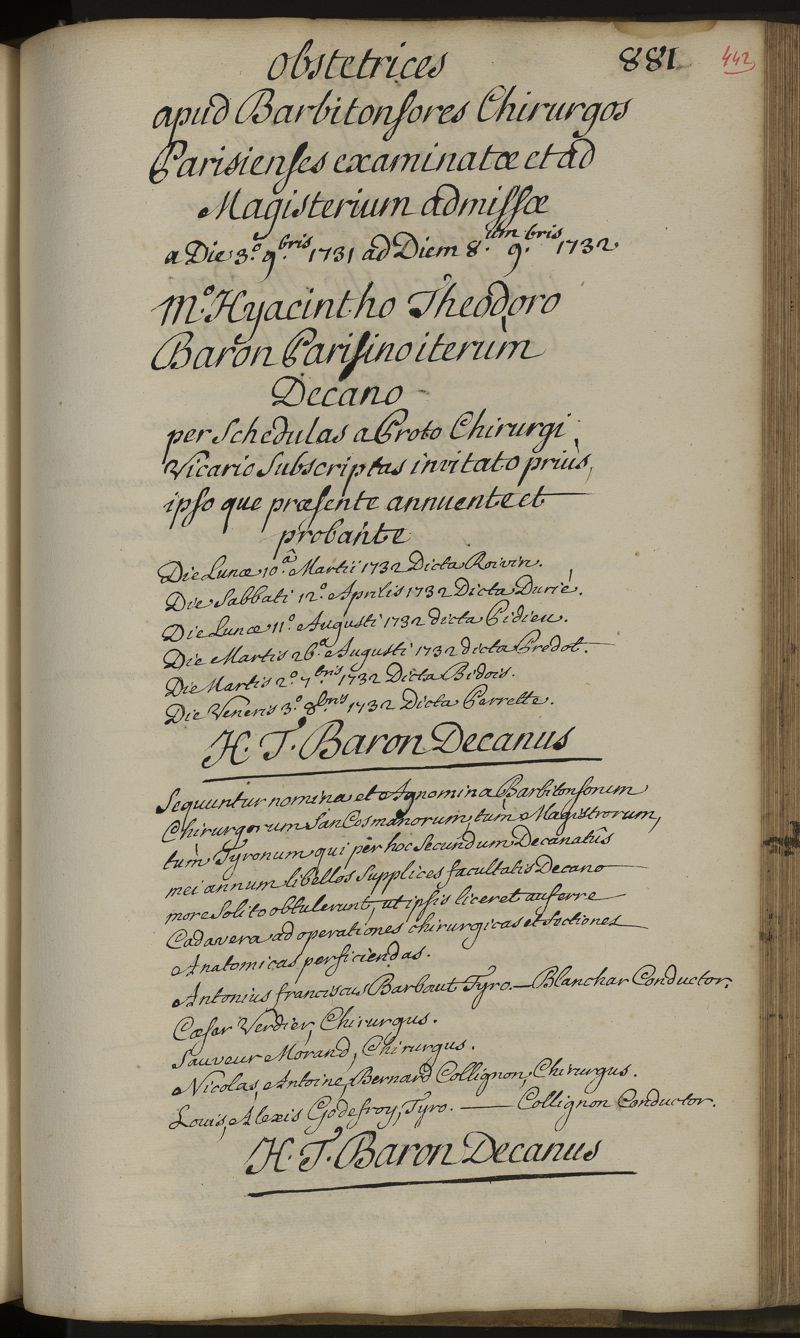 Obstetrices 881 442
apud Barbitonsores Chirurgos
Parisienses examinatæ et ad
Magisterium admissæ
a Die 3.º 9.bris 1731 ad Diem 8.um 9.bris 1732
M.º Hyacintho Theodoro
Baron Parisino iterùm
Decano
per Schedulas a Proto Chirurgi
Vicario Subscriptas invitato priùs,
ipso que præsente annuente et
probante
Die Lunæ 10.â Martii 1732 Dicta Roivin.
Die Sabbati 12.º Aprilis 1732 Dicta Durié.
Die Lunæ 11.º Augusti 1732 dicta Pidieu.
Die Martis 26.a Augusti 1732 dicta Predot.
Die Martis 2.º 7.bris 1732 Dicta Bidois.
Die Veneris 3.º 8.bris 1732 Dicta Perrette.
H. T. Baron Decanus
Sequuntur nomina et Agnomina Barbitonsorum
Chirurgorum SanCosmanorum, tùm Magistrorum,
tùm Tyronum qui per hoc Secundum Decanatûs
mei annum libellos Supplices facultatis Decano
more Solito obtulerunt, ut ipsis liceret auferre
Cadavera ad operationes chirurgicas et Sectiones
Anatomicas perficiendas.
Antonius franciscus Barbaut Tyro. — Blanchar Conductor.
Cæsar Verdier, Chirurgus.
Sauveur Morand, Chirurgus.
Nicolas, Antoine, Bernard Collignon, Chirurgus.
Louis, Alexis Godefroy, Tyro. — Collignon Conductor.
H. T. Baron Decanus